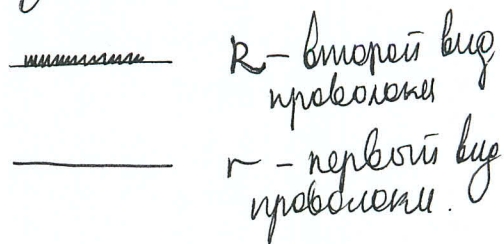 R - второй вид
проволоки
r - первый вид
проволоки.